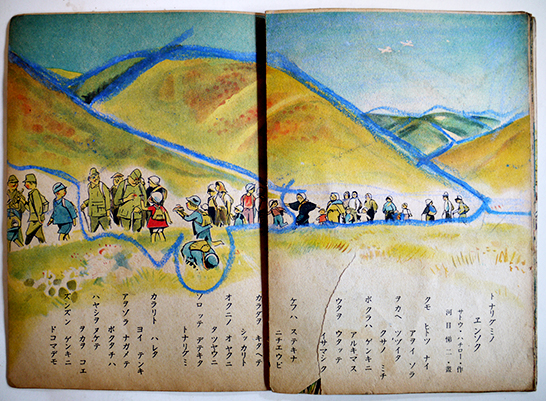 トナリグミノ
エンソク
サトウ・ハチロー・作
河目悌二・畫
クモ ヒトツ ナイ
アヲイ ソラ
ヲカヘ ツヅイタ
クサノ ミチ
ボクラハ ゲンキニ
アルキマス
ウタヲ ウタッテ
イサマシク
ケフハ ステキナ
ニチエウビ
カラダヲ キタヘテ
シッカリト
オクニノ オヤクニ
タツヤウニ
ソロッテ デテキタ
トナリグミ
カラリト ハレタ
ヨイ テンキ
アヲゾラ ナガメテ
ボクタチハ
ハヤシヲ ヌケテ
ヲカヲ コエ
ズンズン ゲンキニ
ドコマデモ